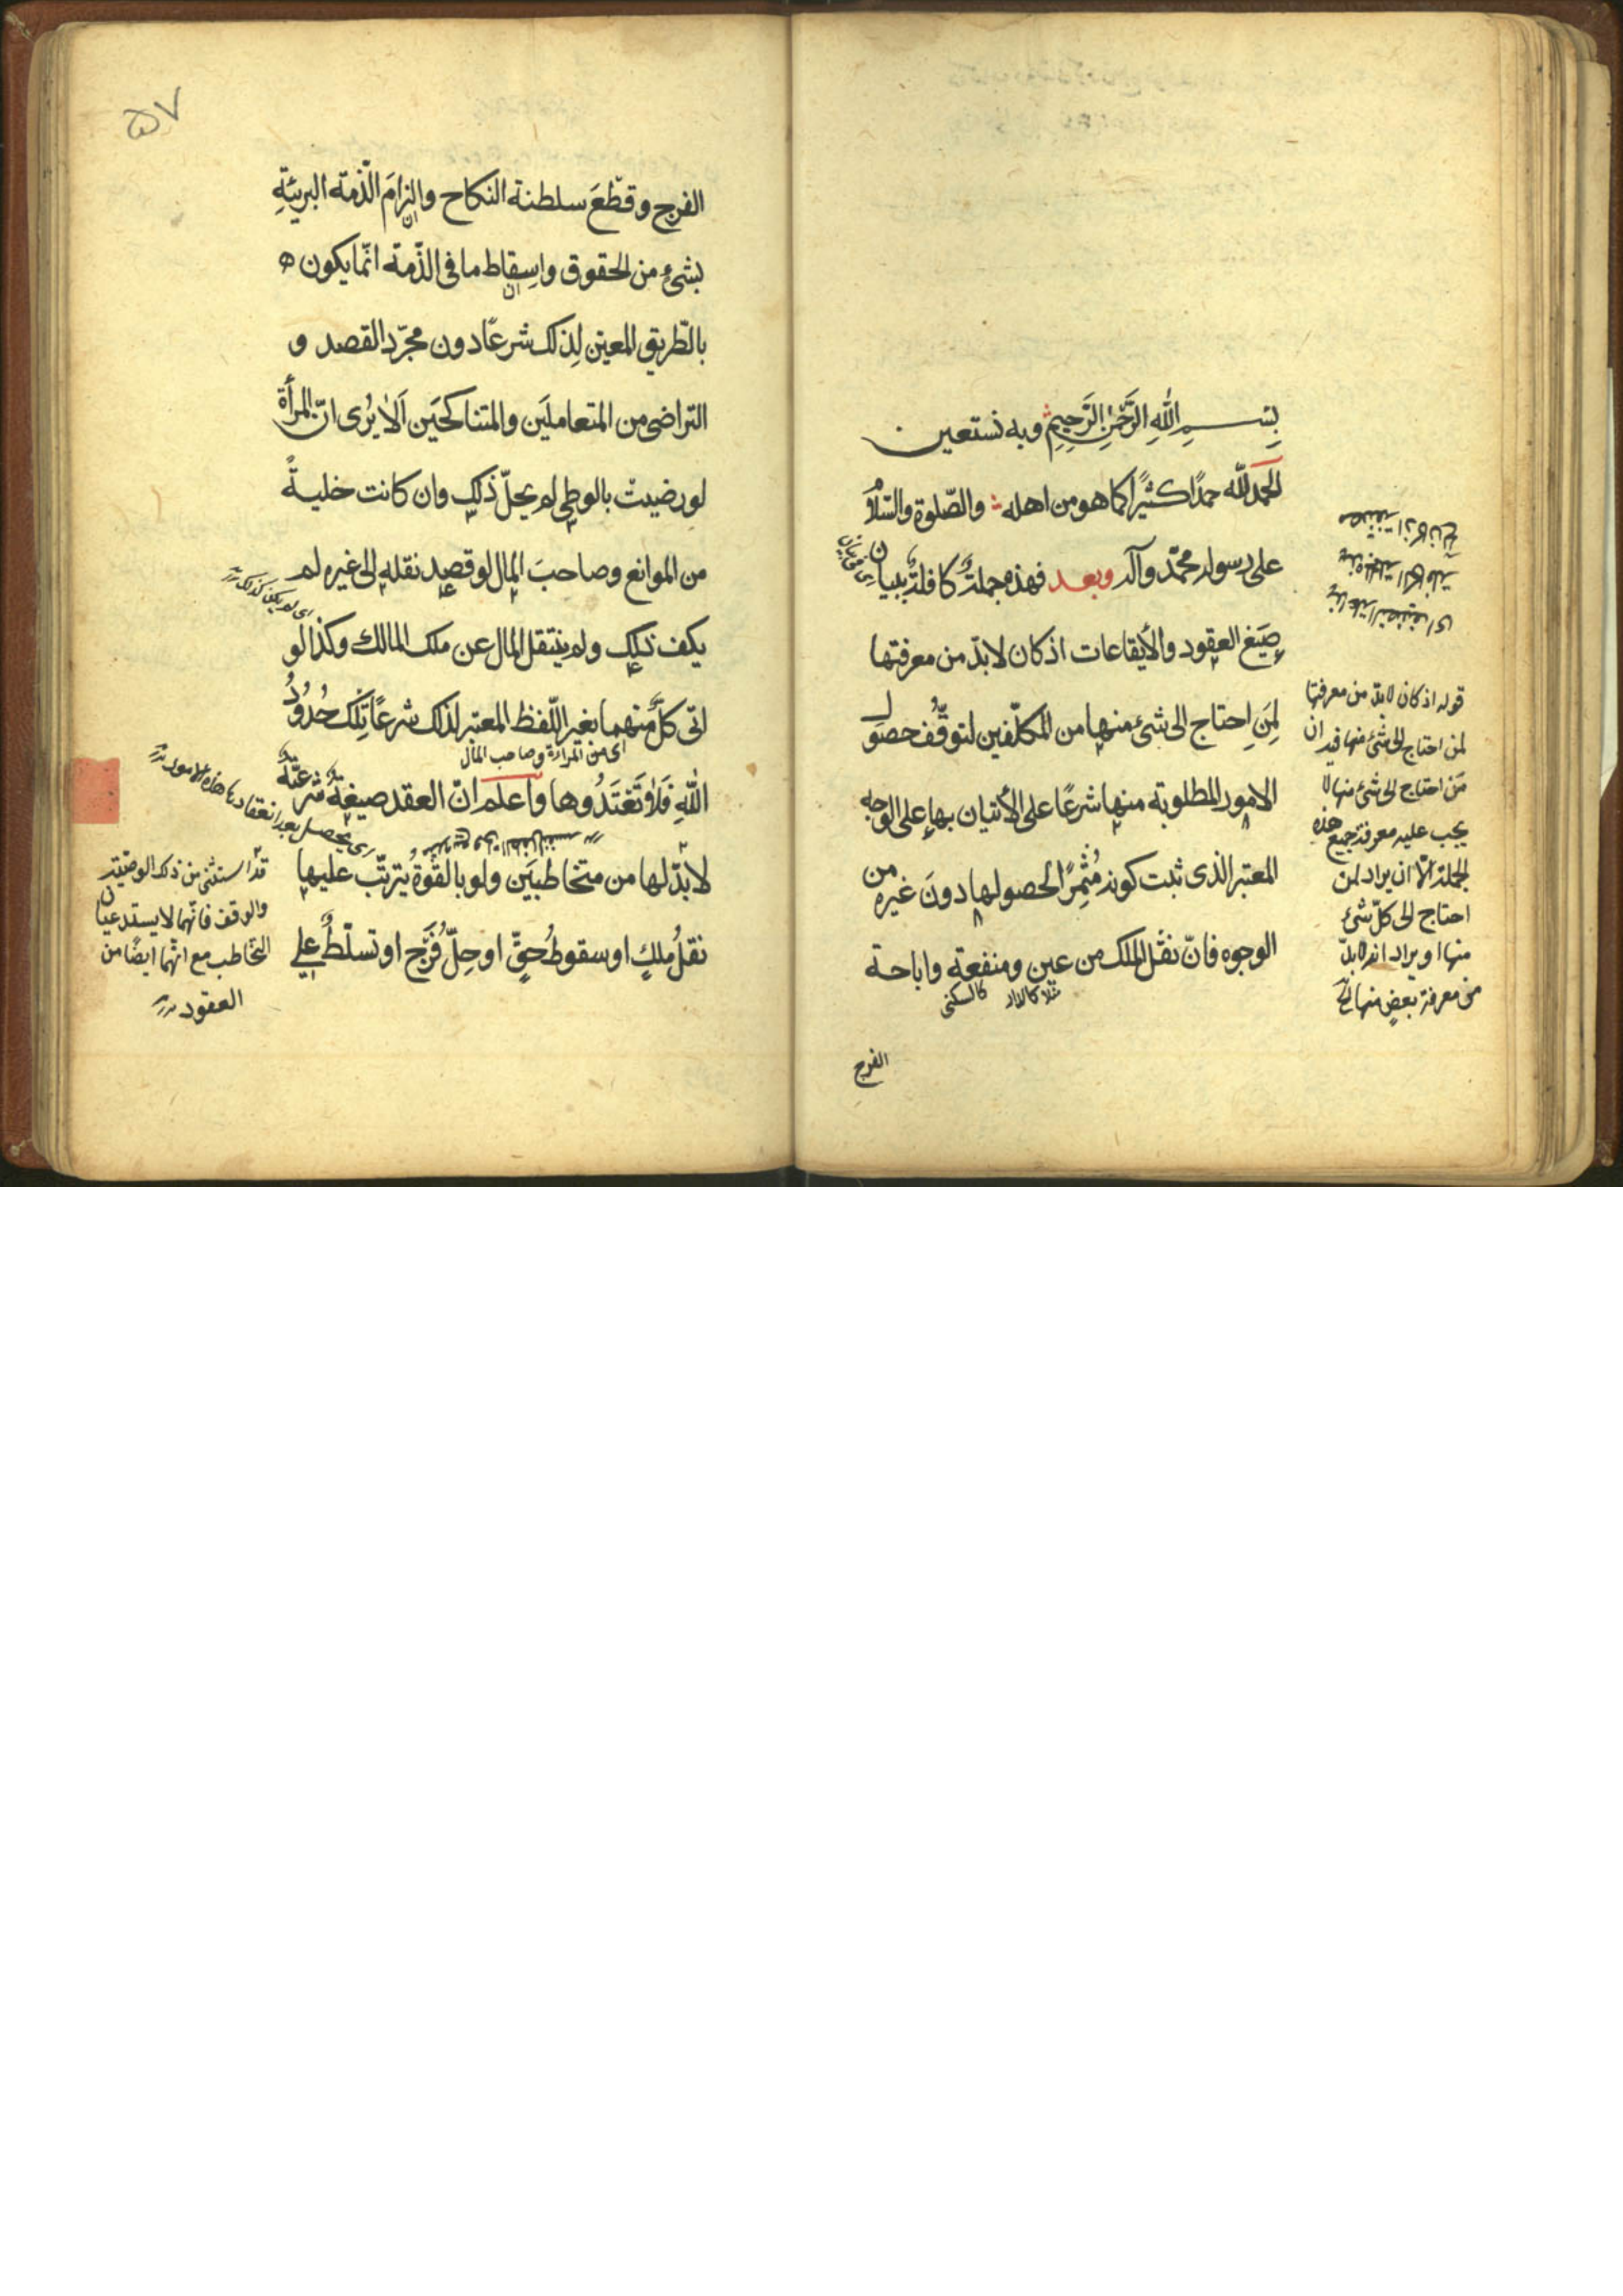 بِسْمِ اللّٰهِ الرَّحْمٰنِ الرَّحِيمِ وبه نستعين
الحمد للّه حمدًا كثيرًا كما هو من اهله والصّلوة والسّلام
على رسوله محمّد وآله وبعد فهذه جملةٌ كافلةٌ ببيان
صِيَغ العقود والأيقاعات اذ كان لابدّ من معرفتها
لِمَنِ احتاج الى شئ منها من المكلّفين لتوقُّف حصول
الامور المطلوبة منها شرعًا على الأتيان بها على الوجه
المعتبر الذى ثبت كونه مُثْمِرًا لحصولها دونَ غيره من
الوجوه فانّ نقْل الملك من عين ومنفعة واباحة
مثلا كالدار كالسكنى
الفرج
قوله اذ كان لابدّ من معرفتها
لمن احتاج الى شئ منها فيه ان
مَن احتاج الى شئ منها لا
يجب عليه معرفة جميع هذه
الجملة الّا ان يراد لمن
احتاج الى كلّ شئ
منها او يراد انه لابدّ
من معرفة بعضٍ منها
۵۷
الفرج وقطْعَ سلطنة النكاح والزامَ الذّمة البريئةِ
بشئٍ من الحقوق واِسقاط ما فى الذّمة انّما يكون
بالطّريق المعين لِذلك شرعًا دون مجرّد القصد و
التراضى من المتعاملَين والمتناكحَين اَلا يُرى انّ المرأة
لو رضيتْ بالوطى لم يحلّ ذلك وان كانت خليةً
من الموانع وصاحبَ المال لو قصد نقله الى غيره لم
اى لم يكن كذلك
يكف ذلك ولم ينتقل المال عن ملك المالك وكذا لو
اتى كلٌّ منهما بغير اللّفظ المعتبر لذلك شرعًا تِلْكَ حُدُودُ
اى من المرأة وصاحب المال
اللّٰهِ فَلا تَعْتَدُوها واعلم انّ العقد صيغةٌ شرعيّةٌ
لابدّ لها من متخاطبَين ولو بالقوّة يترتّب عليها
نقلُ ملكٍ او سقوطُ حقٍّ او حِلّ فَرْجٍ او تسلّطٌ على
اى يحصل بعد انعقادها هذه الامور
قد استثنى من ذلك الوصيّة
والوقف فانّهما لا يستدعيان
التخاطب مع انّهما ايضًا من
العقود